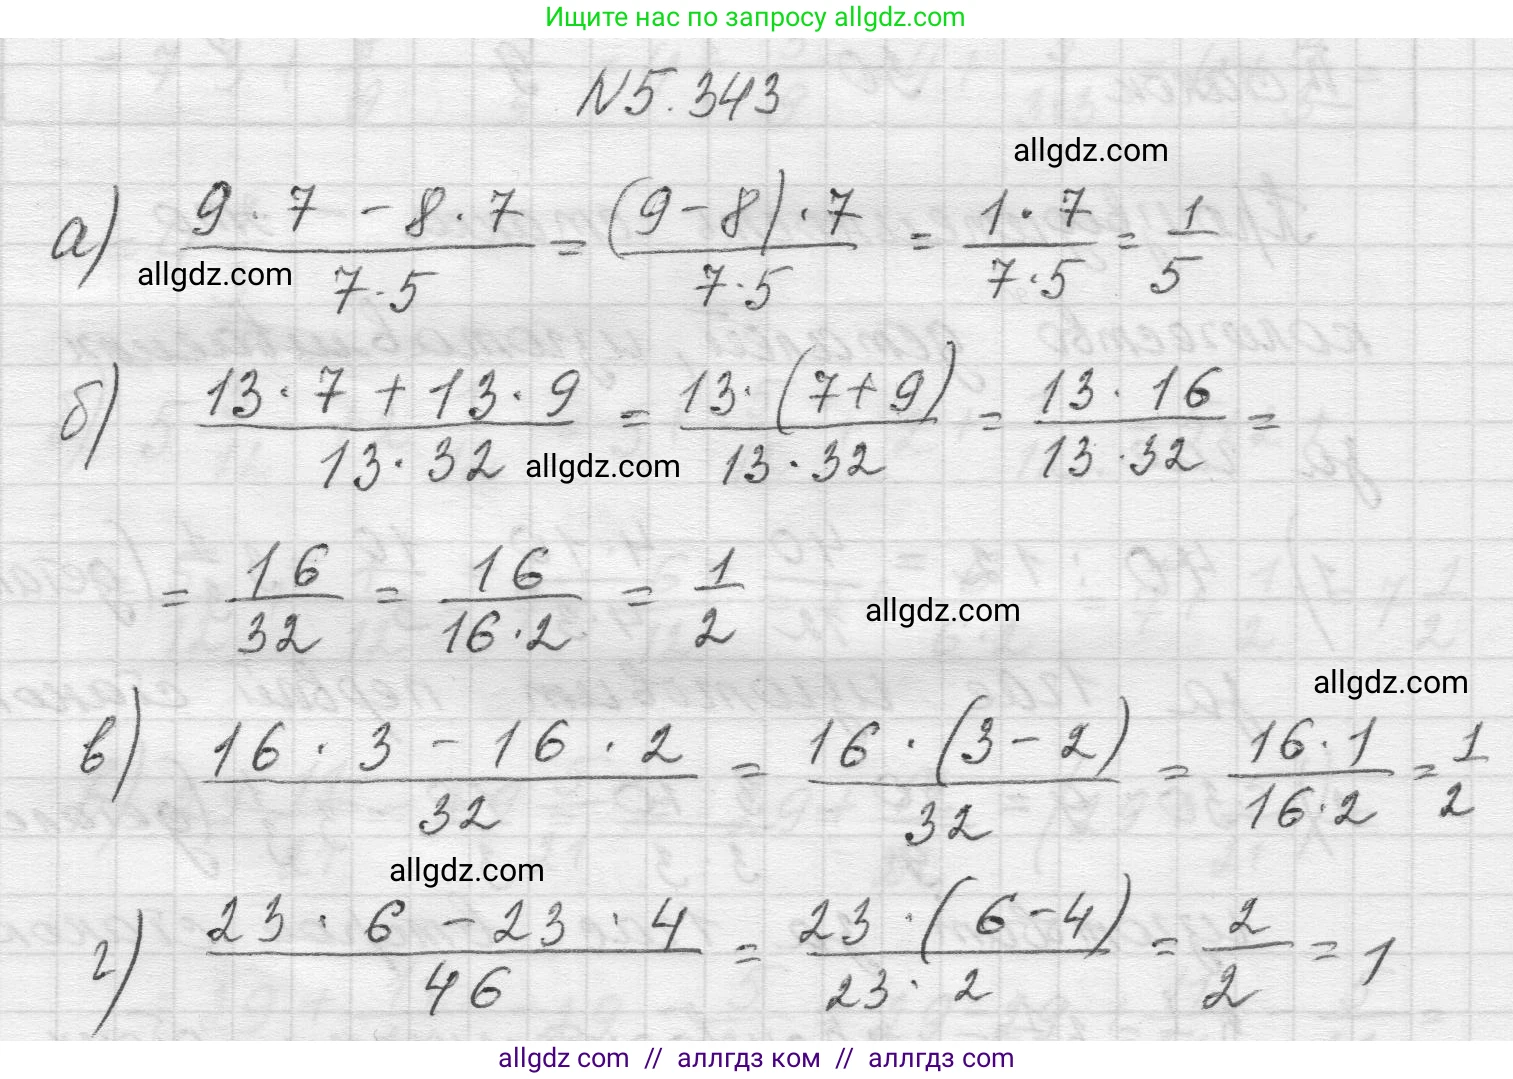 Ищите нас по запросу allgdz.com
N5.343
allgdz.com
а) (9·7 - 8·7)/(7·5) = ((9-8)·7)/(7·5) = (1·7)/(7·5) = 1/5
allgdz.com
б) (13·7+13·9)/(13·32) = (13·(7+9))/(13·32) = (13·16)/(13·32) =
allgdz.com
= 16/32 = 16/(16·2) = 1/2
allgdz.com
allgdz.com
в) (16·3 - 16·2)/32 = (16·(3-2))/32 = (16·1)/(16·2) = 1/2
allgdz.com
г) (23·6 - 23·4)/46 = (23·(6-4))/(23·2) = 2/2 = 1
allgdz com // аллгдз ком // аллгдз com